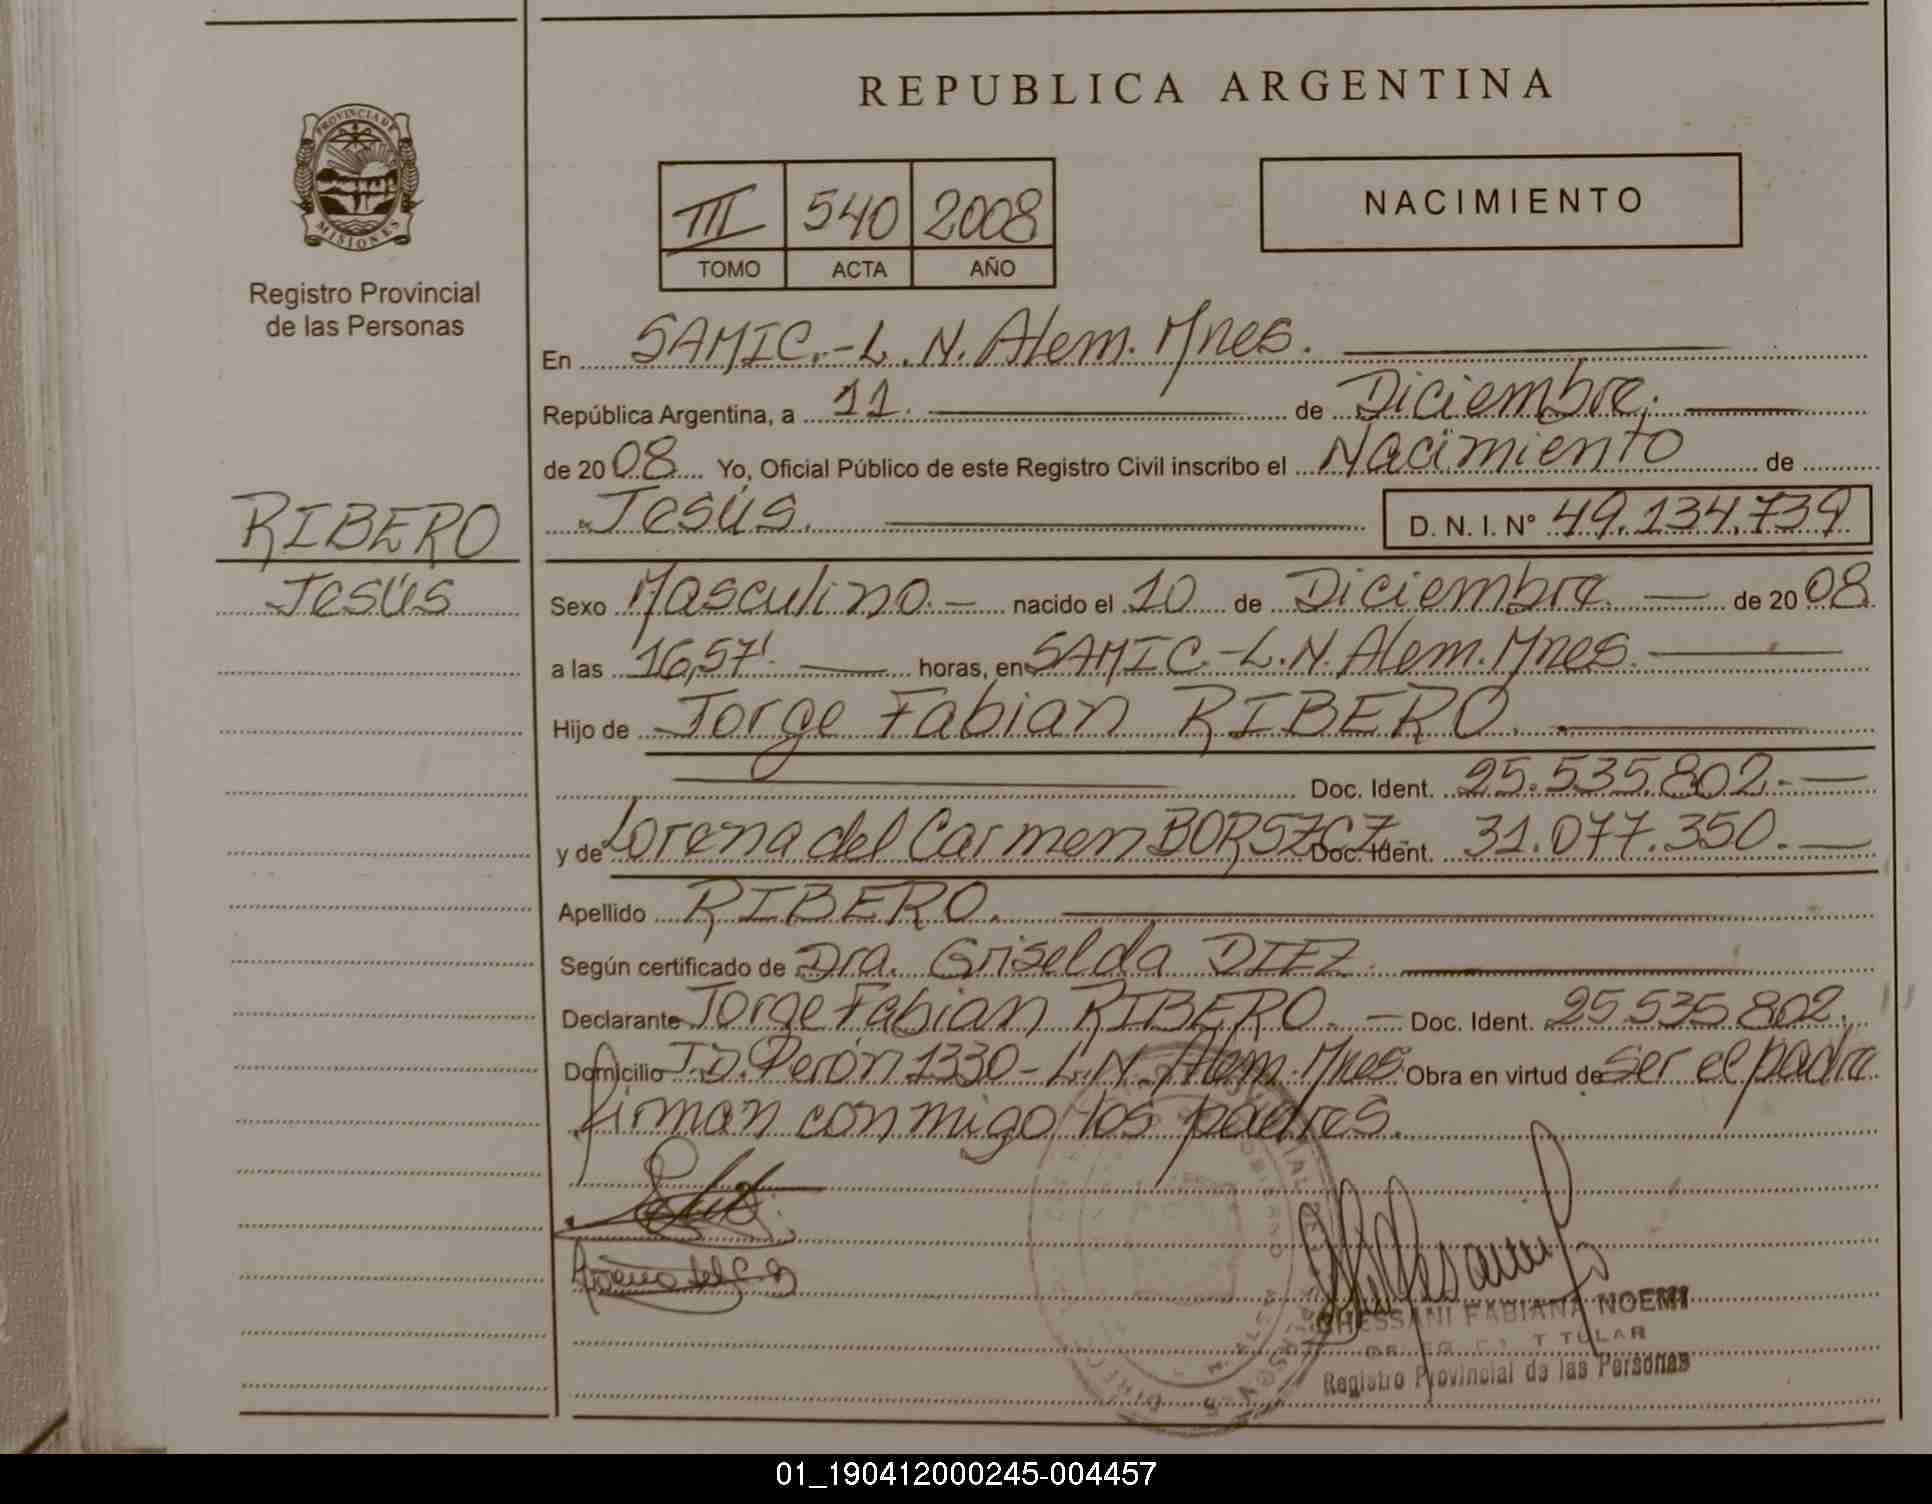 REPUBLICA ARGENTINA
PROVINCIA DE
MISIONES
Registro Provincial
de las Personas
III 540 2008
TOMO ACTA AÑO
NACIMIENTO
En SAMIC.-L.N. Alem. Mnes.
República Argentina, a 11. de Diciembre.
de 2008 Yo, Oficial Público de este Registro Civil inscribo el Nacimiento de
Jesús. D. N. I. N° 49.134.739
RIBERO
Jesús
Sexo Masculino. nacido el 10 de Diciembre de 2008
a las 16,57'. horas, en SAMIC.-L.N. Alem. Mnes.
Hijo de Jorge Fabian RIBERO.
Doc. Ident. 25.535.802.-
y de Lorena del Carmen BORSZCZ- Doc. Ident. 31.077.350.-
Apellido RIBERO.
Según certificado de Dra. Griselda DIEZ.
Declarante Jorge Fabian RIBERO. - Doc. Ident. 25.535.802.
Domicilio J.D. Perón 1330-L.N. Alem. Mnes. Obra en virtud de ser el padre
firman conmigo los padres.
GHESSANI FABIANA NOEMI
TITULAR
Registro Provincial de las Personas
01_190412000245-004457